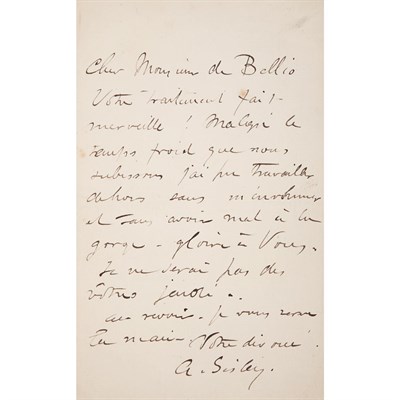 Cher Monsieur de Bellio
Votre traitement fait
merveille ! Malgré le
temps froid que nous
subissons j'ai pu travailler
dehors sans m'enrhumer
et sans avoir mal à la
gorge - gloire à Vous.
Je ne serai pas des
vôtres jeudi..
au revoir - je vous serre
la main Votre dévoué.
A. Sisley.